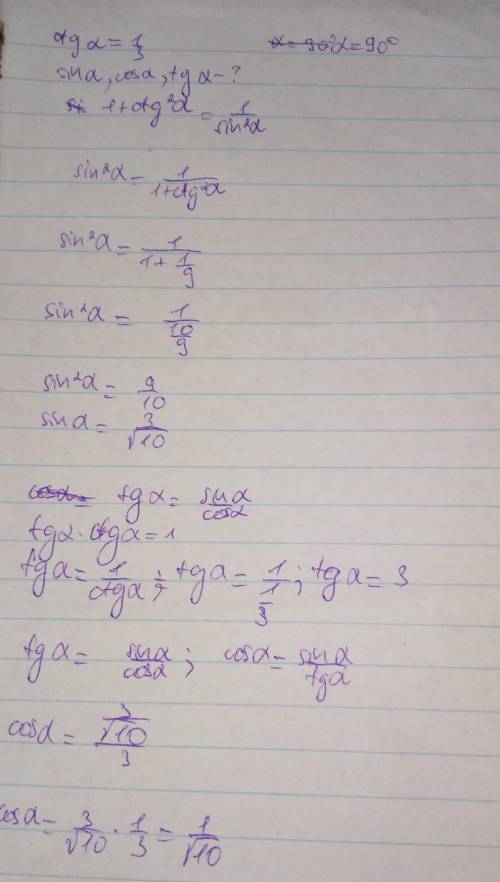 ctg α = 1/3 α=90° α=90°
sin α, cos α, tg α - ?
si 1+ctg²α = 1/sin²α
sin²α = 1/(1+ctg²α)
sin²α = 1/(1+1/9)
sin²α = 1/(10/9)
sin²α = 9/10
sin α = 3/√10
cos α = tg α = sin α/cos α
tg α · ctg α = 1
tg α = 1/ctg α ; tg α = 1/(1/3) ; tg α = 3
tg α = sin α/cos α ; cos α = sin α/tg α
cos α = (3/√10)/3
cos α = 3/√10 · 1/3 = 1/√10